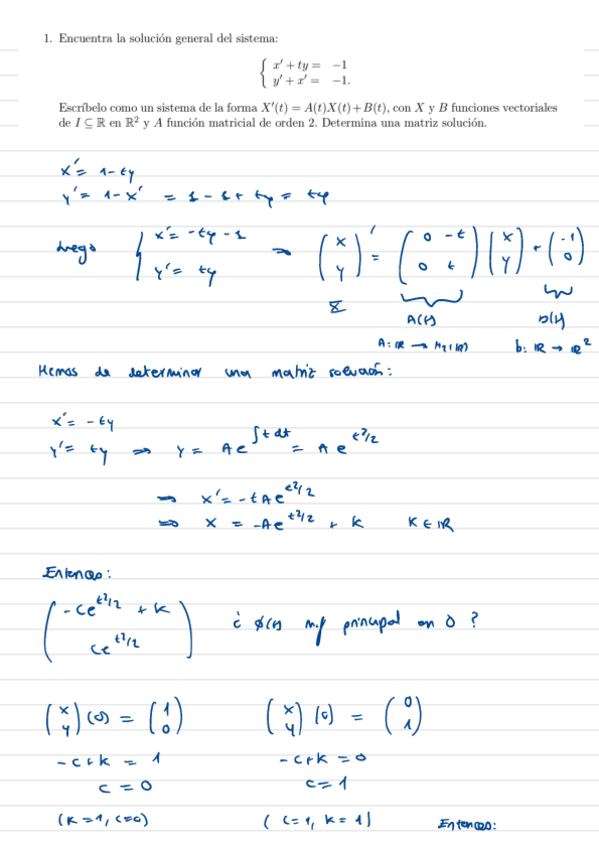 1. Encuentra la solución general del sistema:
{ x′ + ty = −1
y′ + x′ = −1.
Escríbelo como un sistema de la forma X′(t) = A(t)X(t) + B(t), con X y B funciones vectoriales
de I ⊆ ℝ en ℝ² y A función matricial de orden 2. Determina una matriz solución.
x′ = 1 - ty
y′ = 1 - x′ = 1 - 1 + ty = ty
Luego { x′ = -ty - 1
y′ = ty
→ (x y)′ = (0 -t 0 t) (x y) + (-1 0)
X A(t) b(t)
A: ℝ → M₂(ℝ) b: ℝ → ℝ²
Hemos de determinar una matriz solución:
x′ = -ty
y′ = ty ⇒ y = A e^{∫t dt} = A e^{t²/2}
⇒ x′ = -tAe^{t²/2}
⇒ x = -Ae^{t²/2} + k k ∈ ℝ
Entonces:
(-ce^{t²/2} + k
ce^{t²/2}) ¿ φ(t) m.f principal en 0 ?
(x y)(0) = (1 0) (x y)(0) = (0 1)
-c+k = 1 -c+k = 0
c = 0 c = 1
(k=1, c=0) (c=1, k=1) Entonces: